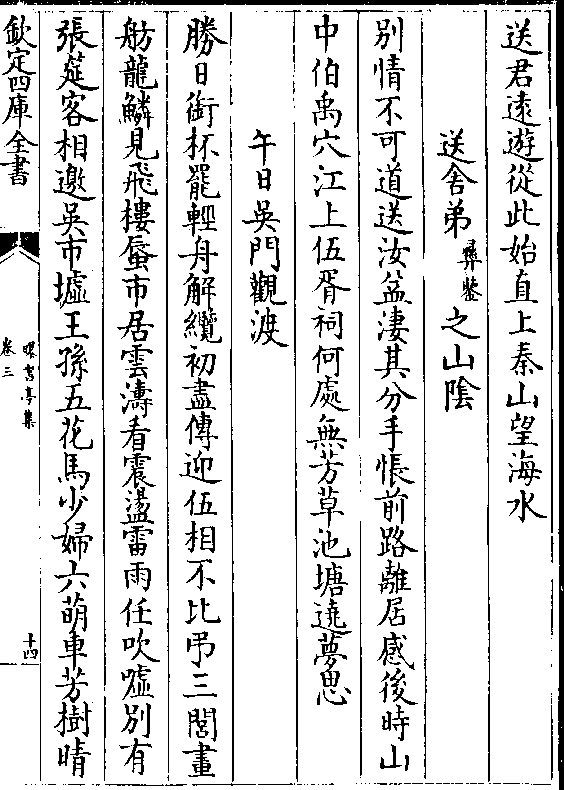 送君遠遊從此始直上秦山望海水
送舍弟彛鑒之山陰
别情不可道送汝益凄其分手悵前路離居感後時山
中伯禹穴江上伍胥祠何處無芳草池塘遶夢思
午日吳門觀渡
勝日銜杯罷輕舟解纜初盡傳迎伍相不比弔三閭畫
舫龍鱗見飛樓蜃市居雲濤看震盪雷雨任吹嘘别有
張筵客相邀吳市墟王孫五花馬少婦六萌車芳樹晴
欽定四庫全書
曝書亭集
卷三
十四